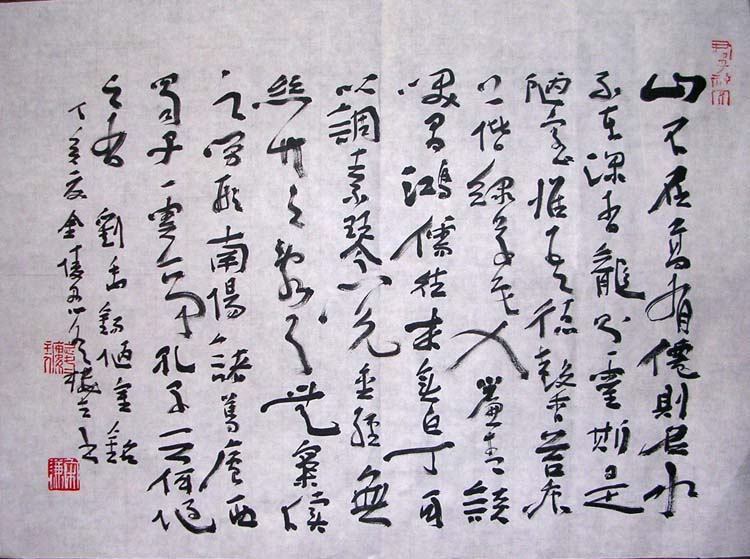 山不在高有僊則名水
不在深有龍則靈斯是
陋室惟吾德馨苔痕
上階綠草色入簾青談
笑有鴻儒往來無白丁可
以調素琴閱金經無
絲竹之亂耳無案牘
之勞形南陽諸葛廬西
蜀子雲亭孔子云何陋
之有 劉禹錫陋室銘
丁亥夏金陵